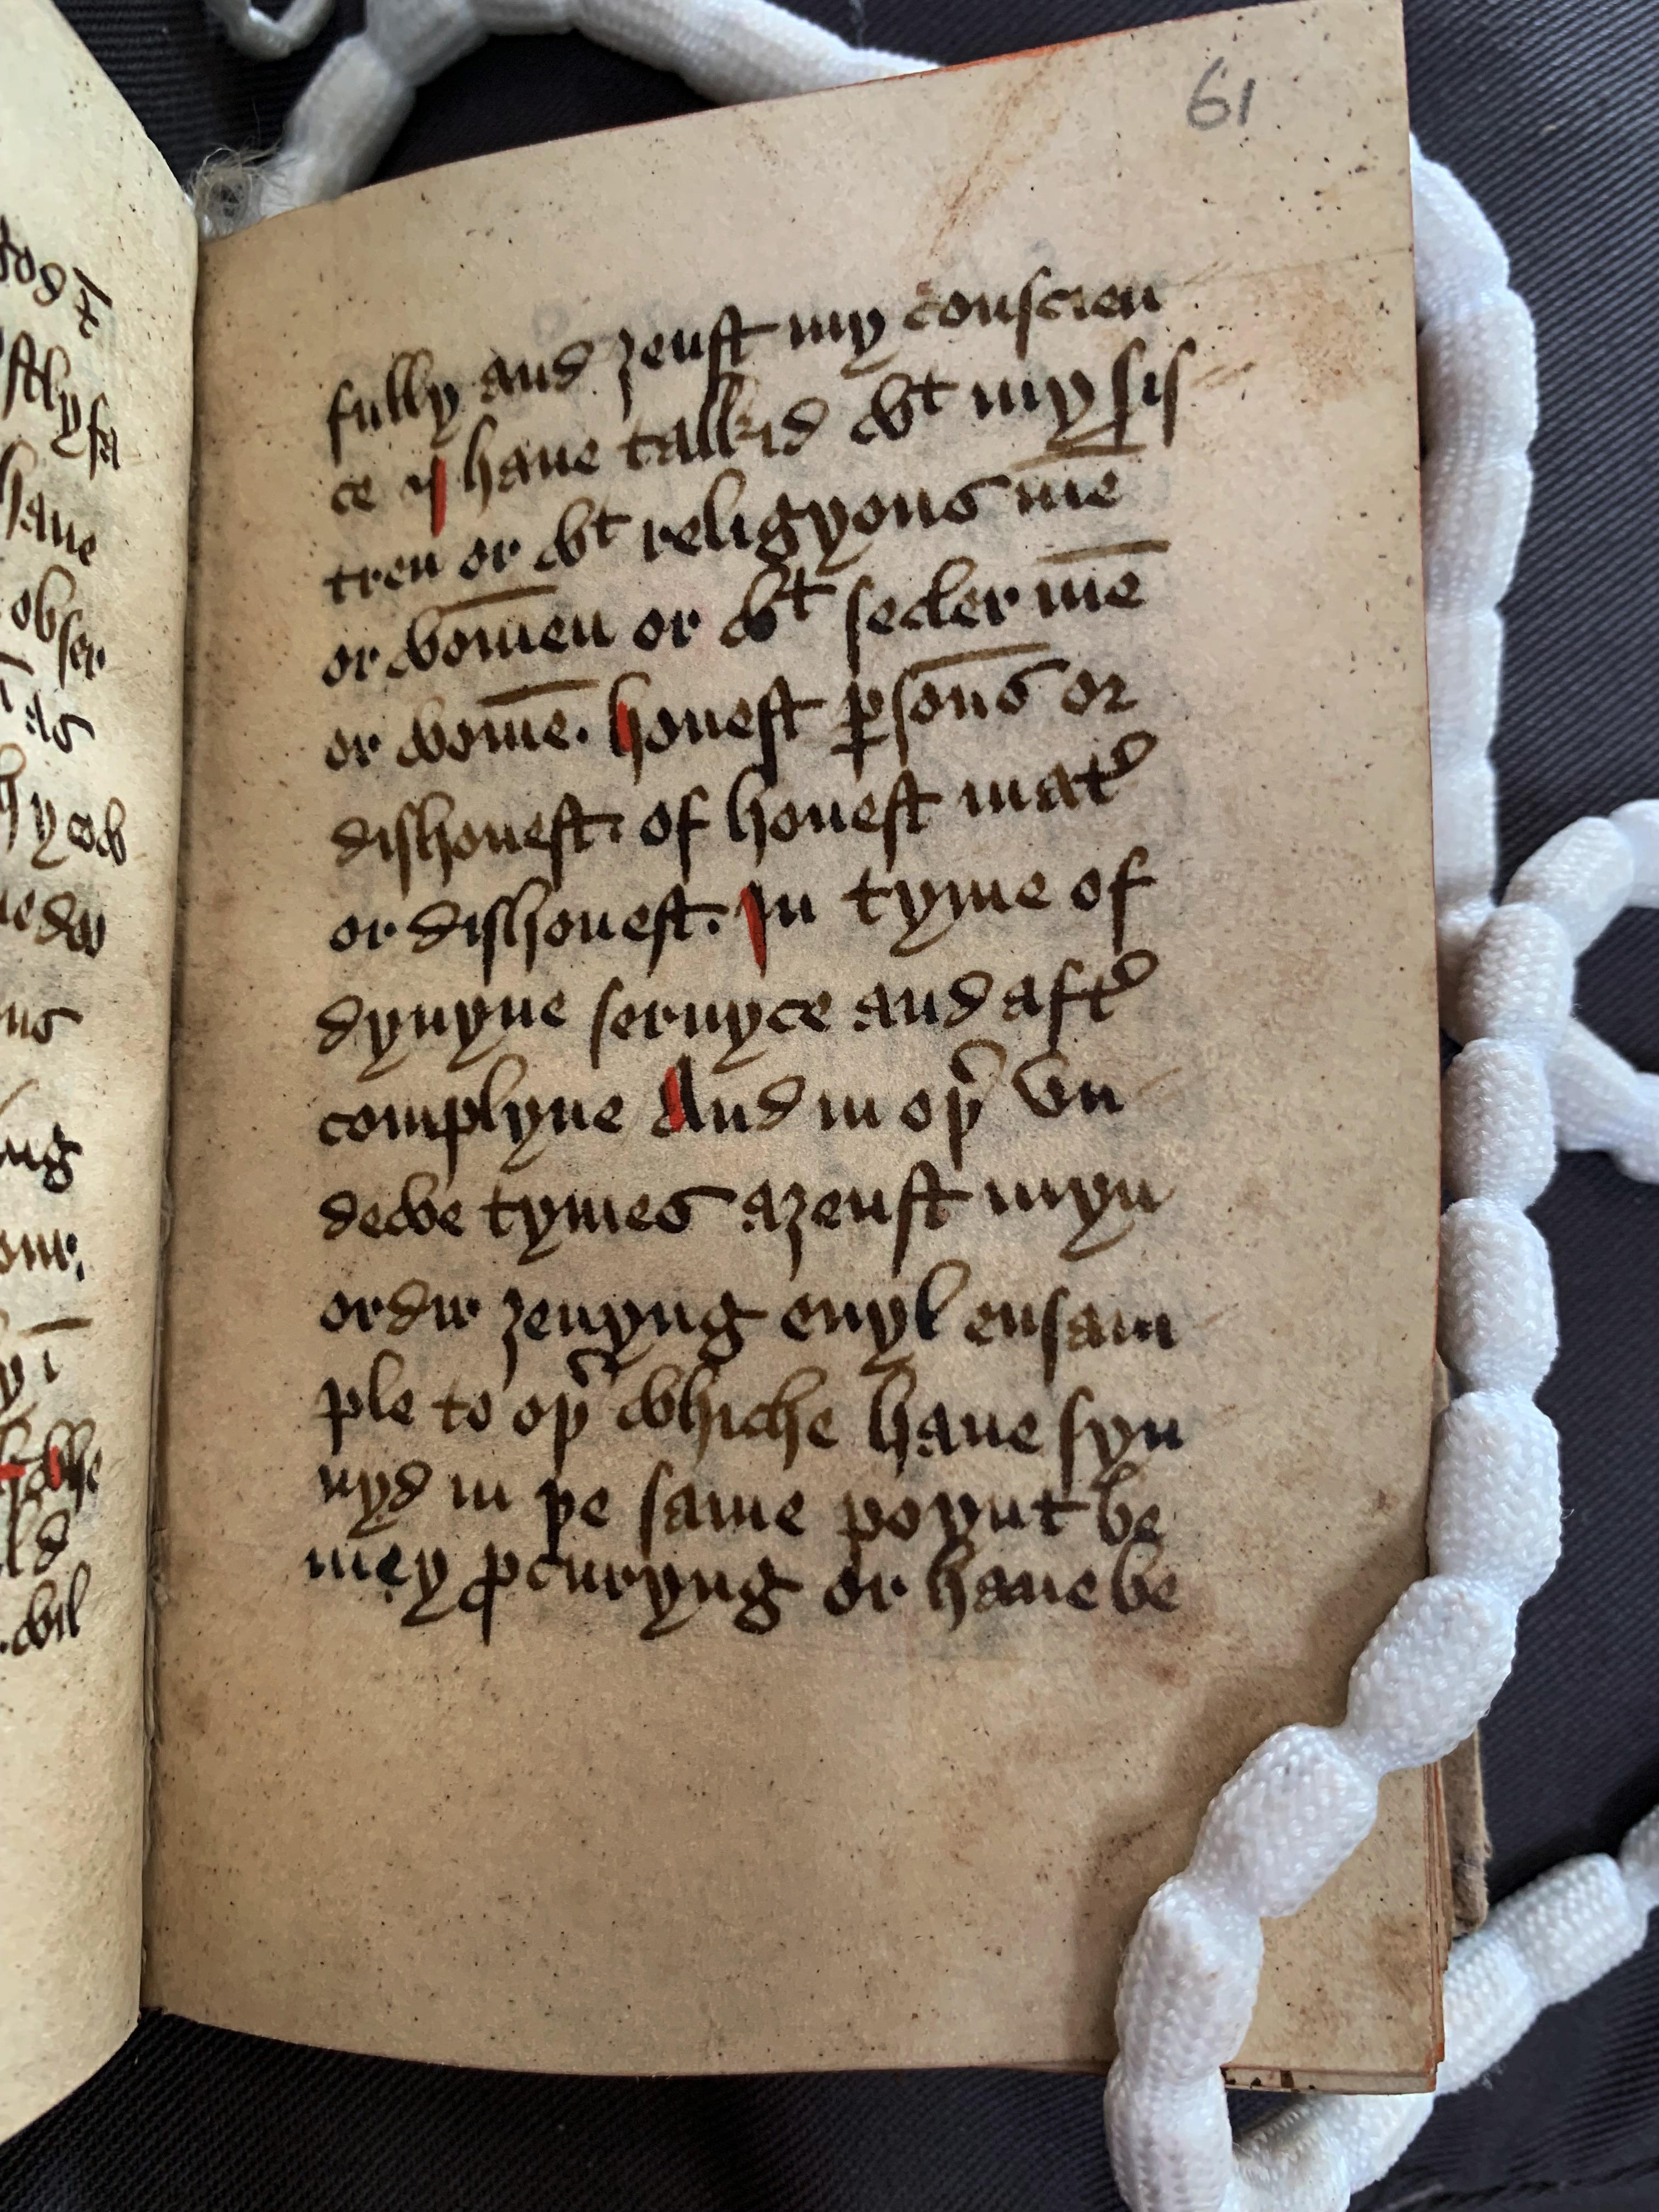 61
fully and ȝenst my conscien
ce I haue talkid wt my sis
tren or wt religyous me̅
or wom̅en or wt seculer me̅
or wome̅. honest ꝑsou̅s or
dishonest. of honest mat͛
or dishonest. In tyme of
dyuyne seruyce and aft͛
complyne And in oþ͛ vn
dewe tymes aȝenst myn
ordir ȝeuyng euyl ensam
ple to oþ͛ whiche haue syn
nyd in þe same poynt be
mey ꝓcuryng or haue be